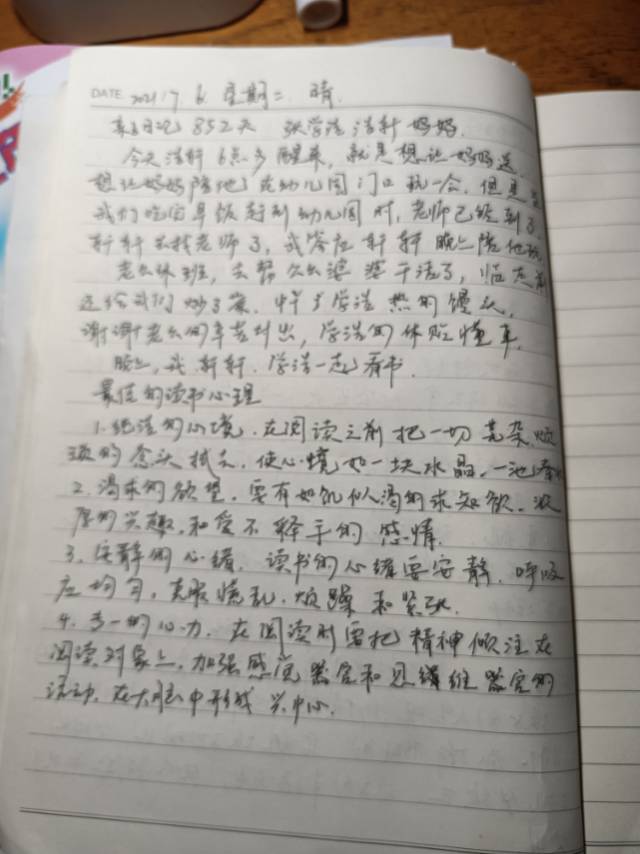 DATE 2021 7 6 星期二 晴.
亲子日记 852天 张学浩 浩轩妈妈.
今天浩轩6点多醒来, 就是想让妈妈送.
想让妈妈陪他在幼儿园门口玩一会. 但是
我们吃完早饭赶到幼儿园时, 老师已经到了.
轩轩去找老师了, 我答应轩轩晚上陪他玩
老公休班, 去帮公公婆婆干活了, 临走前
还给我们炒了菜. 中午学浩热的馒头.
谢谢老公的辛苦付出, 学浩的体贴懂事.
晚上, 我. 轩轩. 学浩一起看书.
最佳的读书心理
1. 纯洁的心境. 在阅读之前把一切芜杂. 烦
琐的念头拭去, 使心境如一块水晶. 一池春
2. 渴求的欲望. 要有如饥似渴的求知欲. 浓
厚的兴趣. 和爱不释手的感情.
3. 安静的心绪. 读书的心绪要安静. 呼吸
应均匀, 克服慌乱. 烦躁和紧张.
4. 专一的心力. 在阅读时要把精神倾注在
阅读对象上. 加强感觉器官和思维器官的
活动. 在大脑中形成兴中心.